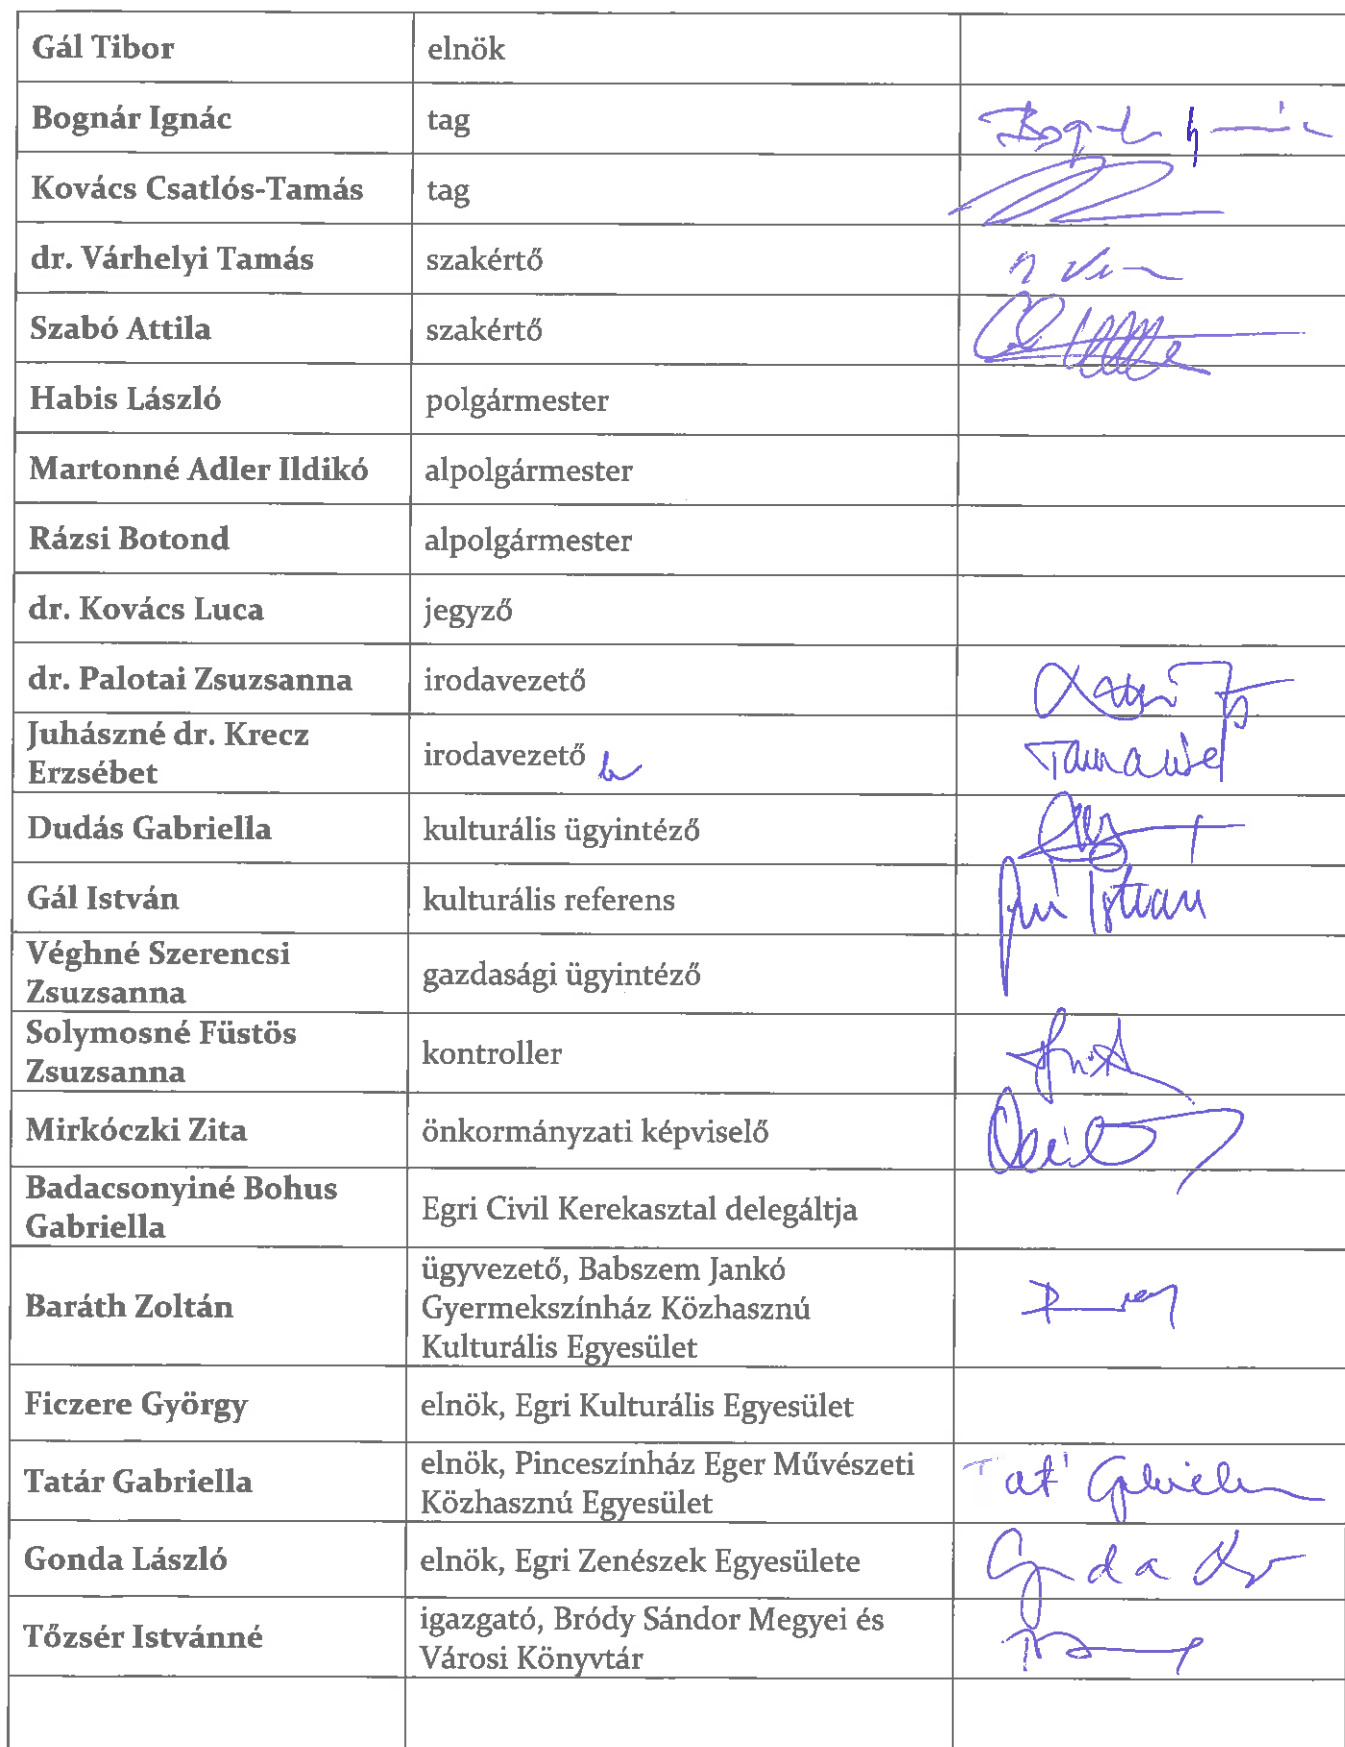 Gál Tibor elnök
Bognár Ignác tag
Kovács Csatlós-Tamás tag
dr. Várhelyi Tamás szakértő
Szabó Attila szakértő
Habis László polgármester
Martonné Adler Ildikó alpolgármester
Rázsi Botond alpolgármester
dr. Kovács Luca jegyző
dr. Palotai Zsuzsanna irodavezető
Juhászné dr. Krecz
Erzsébet
irodavezető
Dudás Gabriella kulturális ügyintéző
Gál István kulturális referens
István
Véghné Szerencsi
Zsuzsanna
gazdasági ügyintéző
Solymosné Füstös
Zsuzsanna
kontroller
Mirkóczki Zita önkormányzati képviselő
Badacsonyiné Bohus
Gabriella
Egri Civil Kerekasztal delegáltja
Baráth Zoltán
ügyvezető, Babszem Jankó
Gyermekszínház Közhasznú
Kulturális Egyesület
Ficzere György elnök, Egri Kulturális Egyesület
Tatár Gabriella
elnök, Pinceszínház Eger Művészeti
Közhasznú Egyesület
Gonda László elnök, Egri Zenészek Egyesülete
Tőzsér Istvánné
igazgató, Bródy Sándor Megyei és
Városi Könyvtár